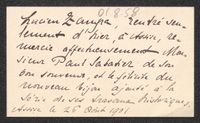 01.8.58
Lucien Zampa, rentré seu-
lement d'hier à Assise, re-
mercie affectueusement Mon-
sieur Paul Sabatier de son
bon souvenir, et le félicite du
nouveau bijou ajouté à la
série de ses travaux historiques,
Assise le 25 Août 1901